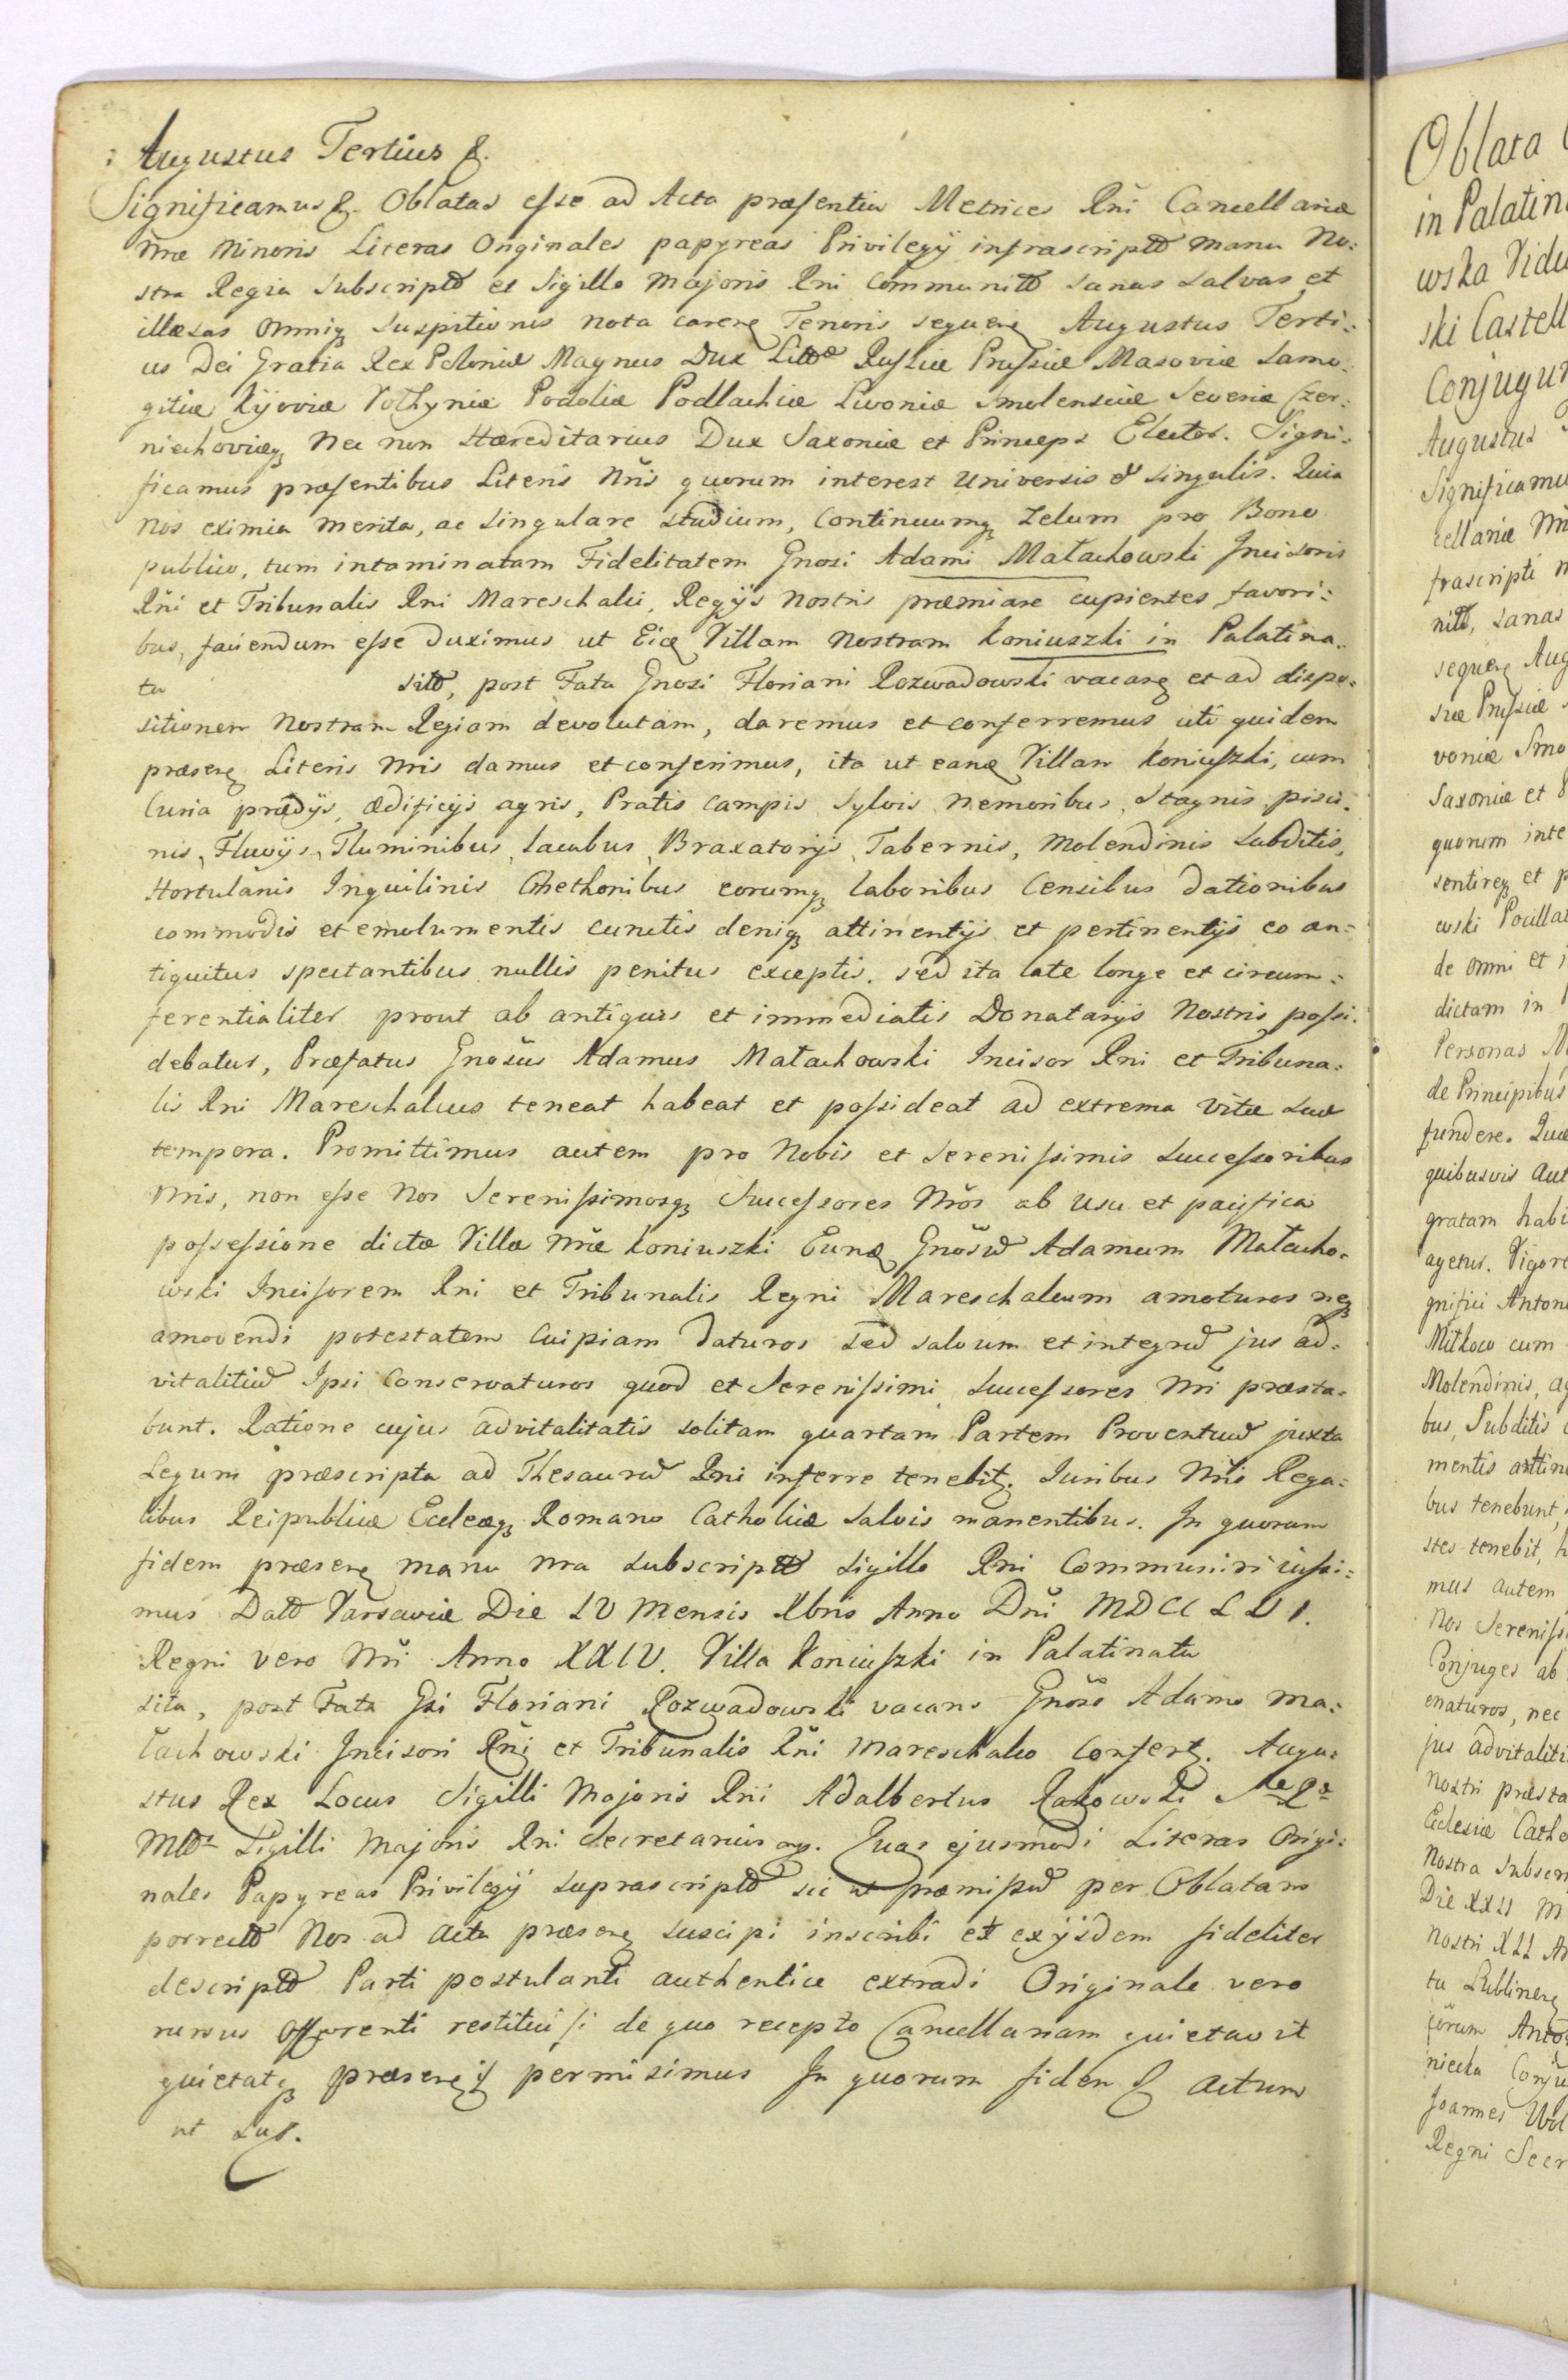 Augustus Tertius &.
Significamus &. Oblatas esse ad Acta præsentia Metrices Rñi Cancellariæ
Nræ Minoris Literas Originales papyreas Privilegÿ infrascriptõ manu No:
stra Regia subscriptõ et Sigillo Majoris Rni Communitõ sanas salvas et
illæsas omniq suspitionis nota careñ Tenoris sequeñ Augustus Terti:
us Dei Gratia Rex Poloniæ Magnus Dux Littõæ Russiæ Prussiæ Masoviæ Samo:
gitiæ Kÿoviæ Volhyniæ Podoliæ Podlachiæ Livoniæ Smolensciæ Severiæ Czer:
niechoviæq Nec non Hæreditarius Dux Saxoniæ et Princeps Elector. Signi:
ficamus præsentibus Literis Nris quorum interest Universis & singulis. Quia
Nos eximia merita, ac singulare studium, Continuumq Zelum pro Bono
publico, tum intaminatam Fidelitatem Gnosi Adami Małachowski Incisoris
Rñi et Tribunalis Rni Mareschalci, Regÿs Nostris præmiare cupientes favori:
bus, faciendum esse duximus ut Eidē Villam Nostram Koniuszki in Palatina.
tu sitõ, post Fata Gnosi Floriani Rozwadowski vacañ et ad dispo:
sitionem Nostram Regiam devolutam, daremus et conferremus uti quidem
præseñ Literis Nris damus et conferimus, ita ut eandē Villam Koniuszki, cum
Curia prædÿs, ædificÿs agris, Pratis Campis Sylvis Nemoribus, Stagnis pisci:
nis, Fluvÿs, Fluminibus, Lacubus, Braxatorÿs, Tabernis, Molendinis Subditis,
Hortulanis Inquilinis Cmethonibus eorumq laboribus Censibus dationibus
commodis et emolumentis cunctis deniq attinentÿs et pertinentÿs eo an:
tiquitus spectantibus nullis penitus exceptis. sed ita late longe et circum:
ferentialiter prout ab antiquis et immediatis Donatarÿs Nostris possi.
debatur, Præfatus Gnosus Adamus Małachowski Incisor Rni et Tribuna:
lis Rni Mareschalcus teneat habeat et possideat ad extrema vitæ suæ
tempora. Promittimus autem pro Nobis et Serenissimis Successoribus
Nris, non esse Nos Serenissimosq Successores Nros ab usu et pacifica
possessione dictæ Villæ Nræ Koniuszki Eundē Gnosũ Adamum Małacho:
wski Incisorem Rni et Tribunalis Regni Mareschalcum amoturos neq
amovendi potestatem cuipiam daturos sed salvum et integrũ jus ad:
vitalitiũ Ipsi Conservaturos quod et Serenissimi Successores Nri præsta:
bunt. Ratione cujus advitalitatis solitam quartam Partem Proventuũ juxta
Legum præscripta ad Thesaurũ Rni inferre tenebitʒ. Iuribus Nris Rega:
libus Reipublicæ Ecclæq Romano Catholicæ salvis manentibus. In quorum
fidem præseñ manu Nra subscriptõ Sigillo Rni Communiri iussi:
mus Datõ Varsaviæ Die IV Mensis Xbris Anno Dñi MDCCLVI.
Regni vero Nri Anno XXIV. Villa Koniuszki in Palatinatu
sita, post Fata Gsi Floriani Rozwadowski vacans Gnoso Adamo Ma:
łachowski Incisori Rñi et Tribunalis Rñi Mareschalco Confertʒ. Augu:
stus Rex Locus Sigilli Majoris Rñi Adalbertus Rakowski Sæ Ræ
Mttis Sigilli Majoris Rni Secretarius mp. Quas ejusmodi Literas Origi:
nales Papyreas Privilegÿ suprascriptõ sic ut præmissũ per Oblatam
porrectõ Nos ad Acta præseñ suscipi inscribi et exÿsdem fideliter
descriptõ Parti postulanti authentice extradi Originale vero
rursus Offerenti restitui si de quo recepto Cancellariam quietavit
quietatq præseñ & permisimus In quorum fidem & Actum
ut sup.

Oblata
in Palatin
wska Vidu
ski Castell
Conjugu
Augustus
Significamu
cellariæ
frascripti
nitõ, sanas
sequeñ Aug
siæ Prussiæ
voniæ Smo
Saxoniæ et
quorum inte
sentireq et
wski Pocillat
de omni et
dictam in
Personas
de Principibus
fundere. Quæ
quibusvis aut
gratam habi
agetur. Vigore
gnifici Anton
Mitkow cum
Molendinis, ag
bus, Subditis
mentis attine
bus tenebunt,
stes tenebit,
mus autem
Nos Sereniss
Conjuges ab
enaturos, nec
jus advitaliti
Nostri præsta
Ecclesiæ Catho
Nostra subscri
Die XXII M
Nostri XII
tu Lublineñ
niecka Conju
Joannes Wol
Regni Secr